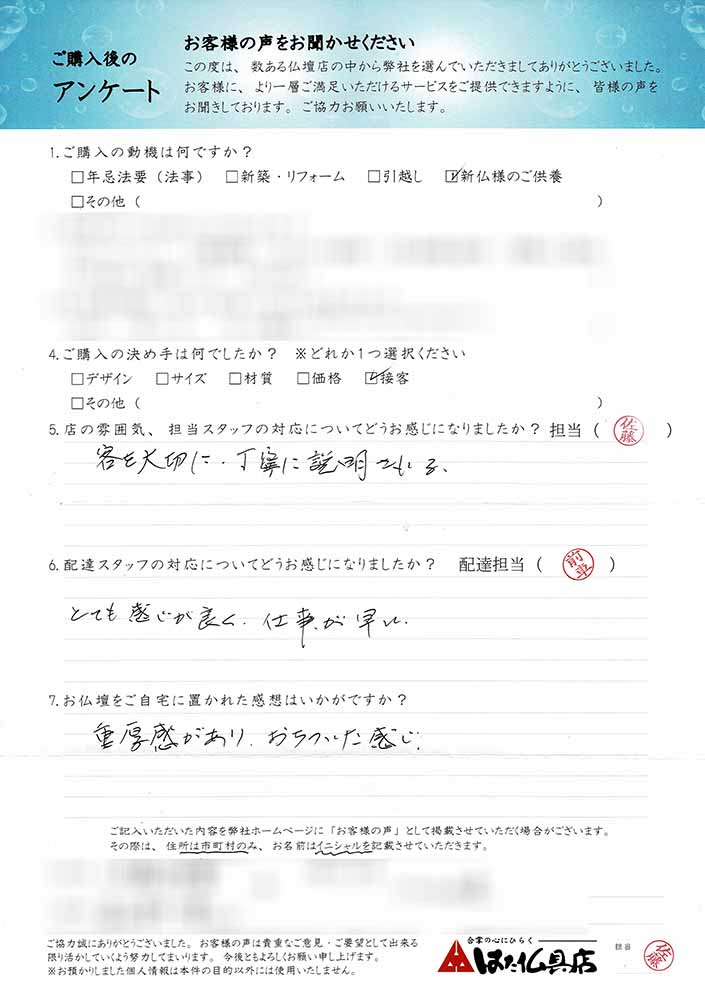 ご購入後の
アンケート
お客様の声をお聞かせください
この度は、数ある仏壇店の中から弊社を選んでいただきましてありがとうございました。
お客様に、より一層ご満足いただけるサービスをご提供できますように、皆様の声を
お聞きしております。ご協力お願いいたします。
1.ご購入の動機は何ですか?
□年忌法要(法事) □新築・リフォーム □引越し ☑新仏様のご供養
□その他( )
4.ご購入の決め手は何でしたか? ※どれか1つ選択ください
□デザイン □サイズ □材質 □価格 ☑接客
□その他( )
5.店の雰囲気、担当スタッフの対応についてどうお感じになりましたか?担当( 佐藤 )
客を大切に、丁寧に説明される、
6.配達スタッフの対応についてどうお感じになりましたか? 配達担当( 前車 )
とても感じが良く、仕事が早い、
7.お仏壇をご自宅に置かれた感想はいかがですか?
重厚感があり、おちついた感じ、
ご記入いただいた内容を弊社ホームページに「お客様の声」として掲載させていただく場合がございます。
その際は、住所は市町村のみ、お名前はイニシャルを記載させていただきます。
ご協力誠にありがとうございました。お客様の声は貴重なご意見・ご要望として出来る
限り活かしていくよう努力してまいります。今後ともよろしくお願い申し上げます。
※お預かりしました個人情報は本件の目的以外には使用いたしません。
合掌の心にひらく
はた仏具店
担当
佐藤